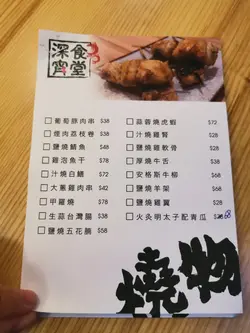 深宵食堂
□ 葡萄豚肉串 $38
□ 煙肉荔枝卷 $38
□ 鹽燒鯖魚 $48
□ 雞泡魚干 $78
□ 汁燒白鱔 $72
□ 大蔥雞肉串 $42
□ 甲羅燒 $78
□ 生蒜台灣腸 $38
□ 鹽燒五花腩 $58
□ 蒜蓉燒虎蝦 $72
□ 汁燒雞腎 $28
□ 鹽燒雞軟骨 $28
□ 厚燒牛舌 $38
□ 安格斯牛柳 $68
□ 鹽燒羊架 $68
□ 鹽燒雞翼 $28
□ 火灸明太子配青瓜 68
燒物